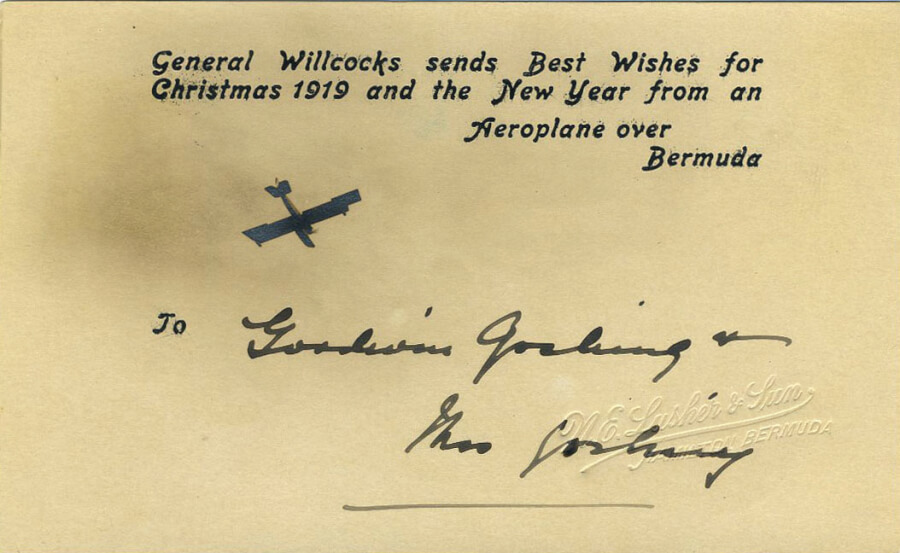 General Willcocks sends Best Wishes for
Christmas 1919 and the New Year from an
Aeroplane over
Bermuda
To Goodwin Gosling &
Mrs Gosling
N.E. Lusher & Sun
HAMILTON BERMUDA